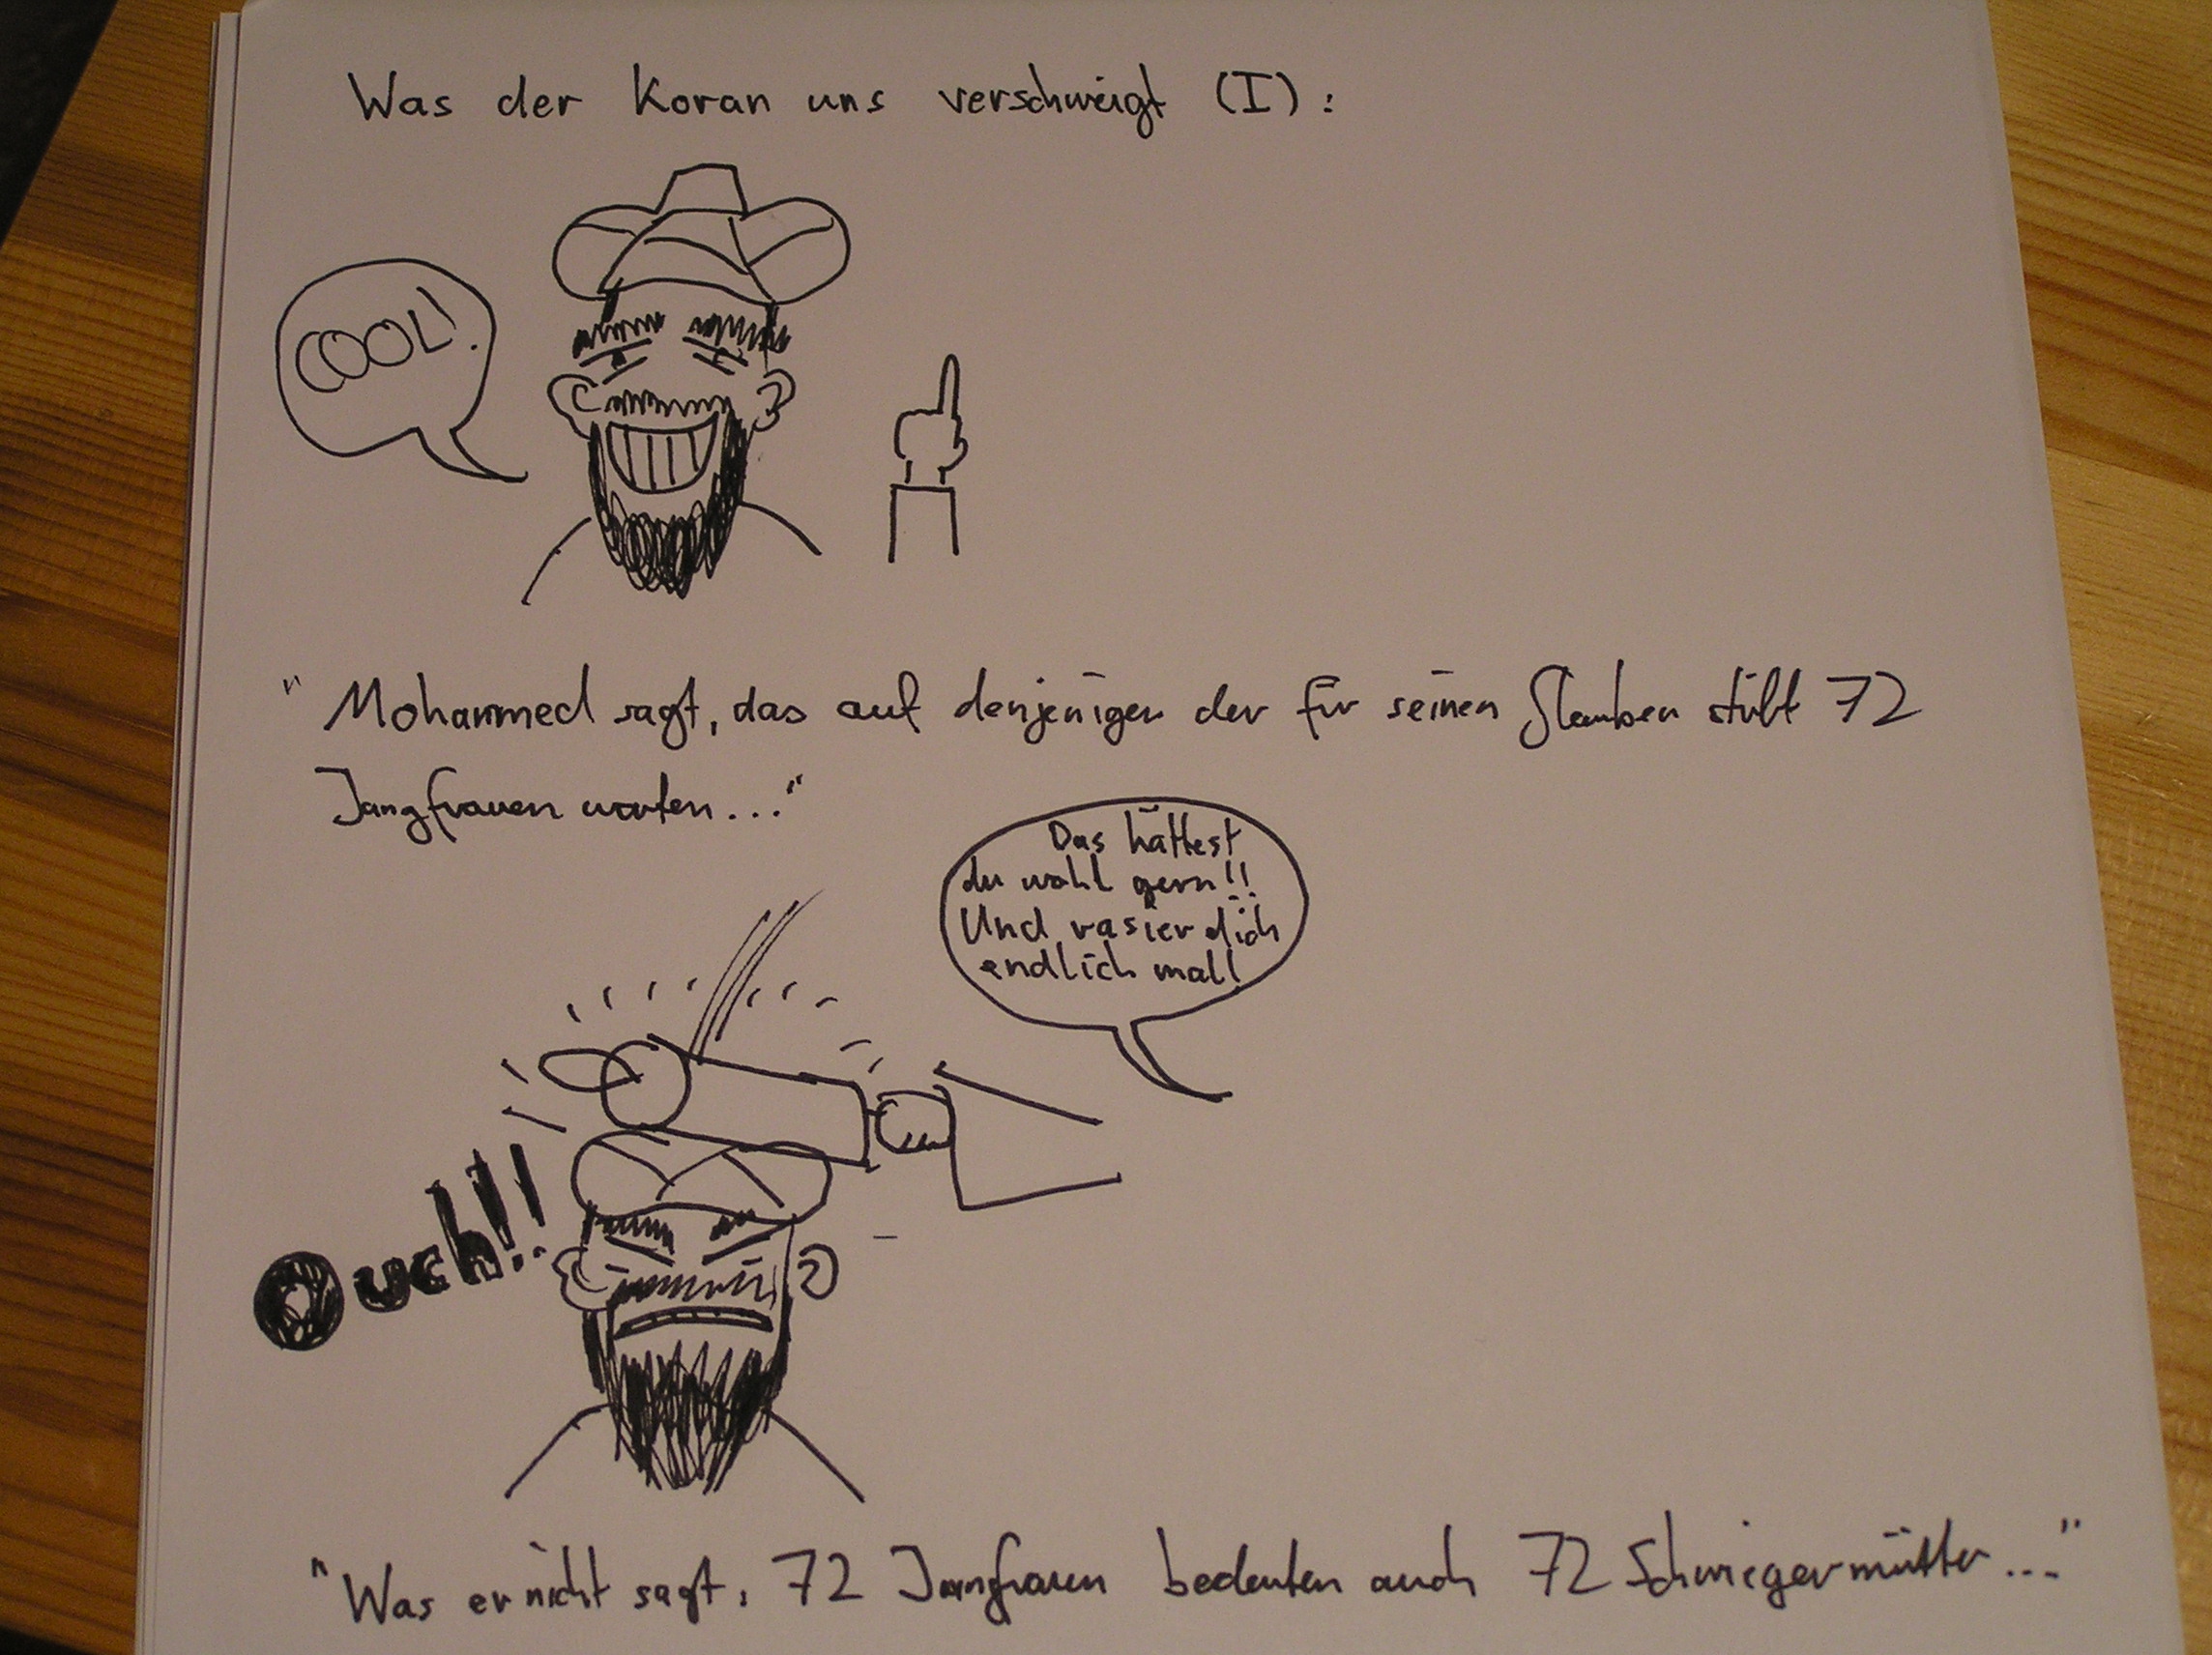 Was der Koran uns verschweigt (I):
COOL!
"Mohammed sagt, das auf denjenigen der für seinen Glauben stirbt 72
Jungfrauen warten..."
Das hättest
du wohl gern!!
Und rasier dich
endlich mal!
Ouch!!!
"Was er nicht sagt: 72 Jungfrauen bedeuten auch 72 Schwiegermütter..."